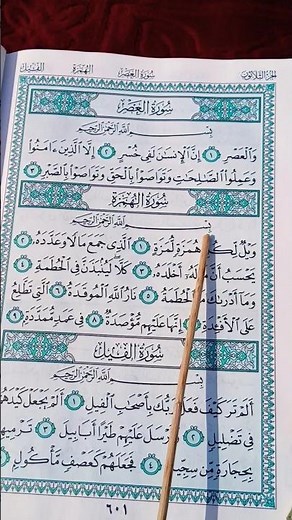 الجزء الثلاثون سورة العصر الهمزة الفيل
سورة العصر
بسم الله الرحمن الرحيم
وَالْعَصْرِ ١ إِنَّ الْإِنسَٰنَ لَفِي خُسْرٍ ٢ إِلَّا الَّذِينَ ءَامَنُوا
وَعَمِلُوا الصَّٰلِحَٰتِ وَتَوَاصَوْا بِالْحَقِّ وَتَوَاصَوْا بِالصَّبْرِ ٣
سورة الهمزة
بسم الله الرحمن الرحيم
وَيْلٌ لِّكُلِّ هُمَزَةٍ لُّمَزَةٍ ١ الَّذِي جَمَعَ مَالًا وَعَدَّدَهُ ٢
يَحْسَبُ أَنَّ مَالَهُ أَخْلَدَهُ ٣ كَلَّا لَيُنبَذَنَّ فِي الْحُطَمَةِ ٤
وَمَا أَدْرَىٰكَ مَا الْحُطَمَةُ ٥ نَارُ اللَّهِ الْمُوقَدَةُ ٦ الَّتِي تَطَّلِعُ
عَلَى الْأَفْـِٔدَةِ ٧ إِنَّهَا عَلَيْهِم مُّؤْصَدَةٌ ٨ فِي عَمَدٍ مُّمَدَّدَةٍ ٩
سورة الفيل
بسم الله الرحمن الرحيم
أَلَمْ تَرَ كَيْفَ فَعَلَ رَبُّكَ بِأَصْحَٰبِ الْفِيلِ ١ أَلَمْ يَجْعَلْ كَيْدَهُمْ
فِي تَضْلِيلٍ ٢ وَأَرْسَلَ عَلَيْهِمْ طَيْرًا أَبَابِيلَ ٣ تَرْمِيهِم
بِحِجَارَةٍ مِّن سِجِّيلٍ ٤ فَجَعَلَهُمْ كَعَصْفٍ مَّأْكُولٍ
٦٠١